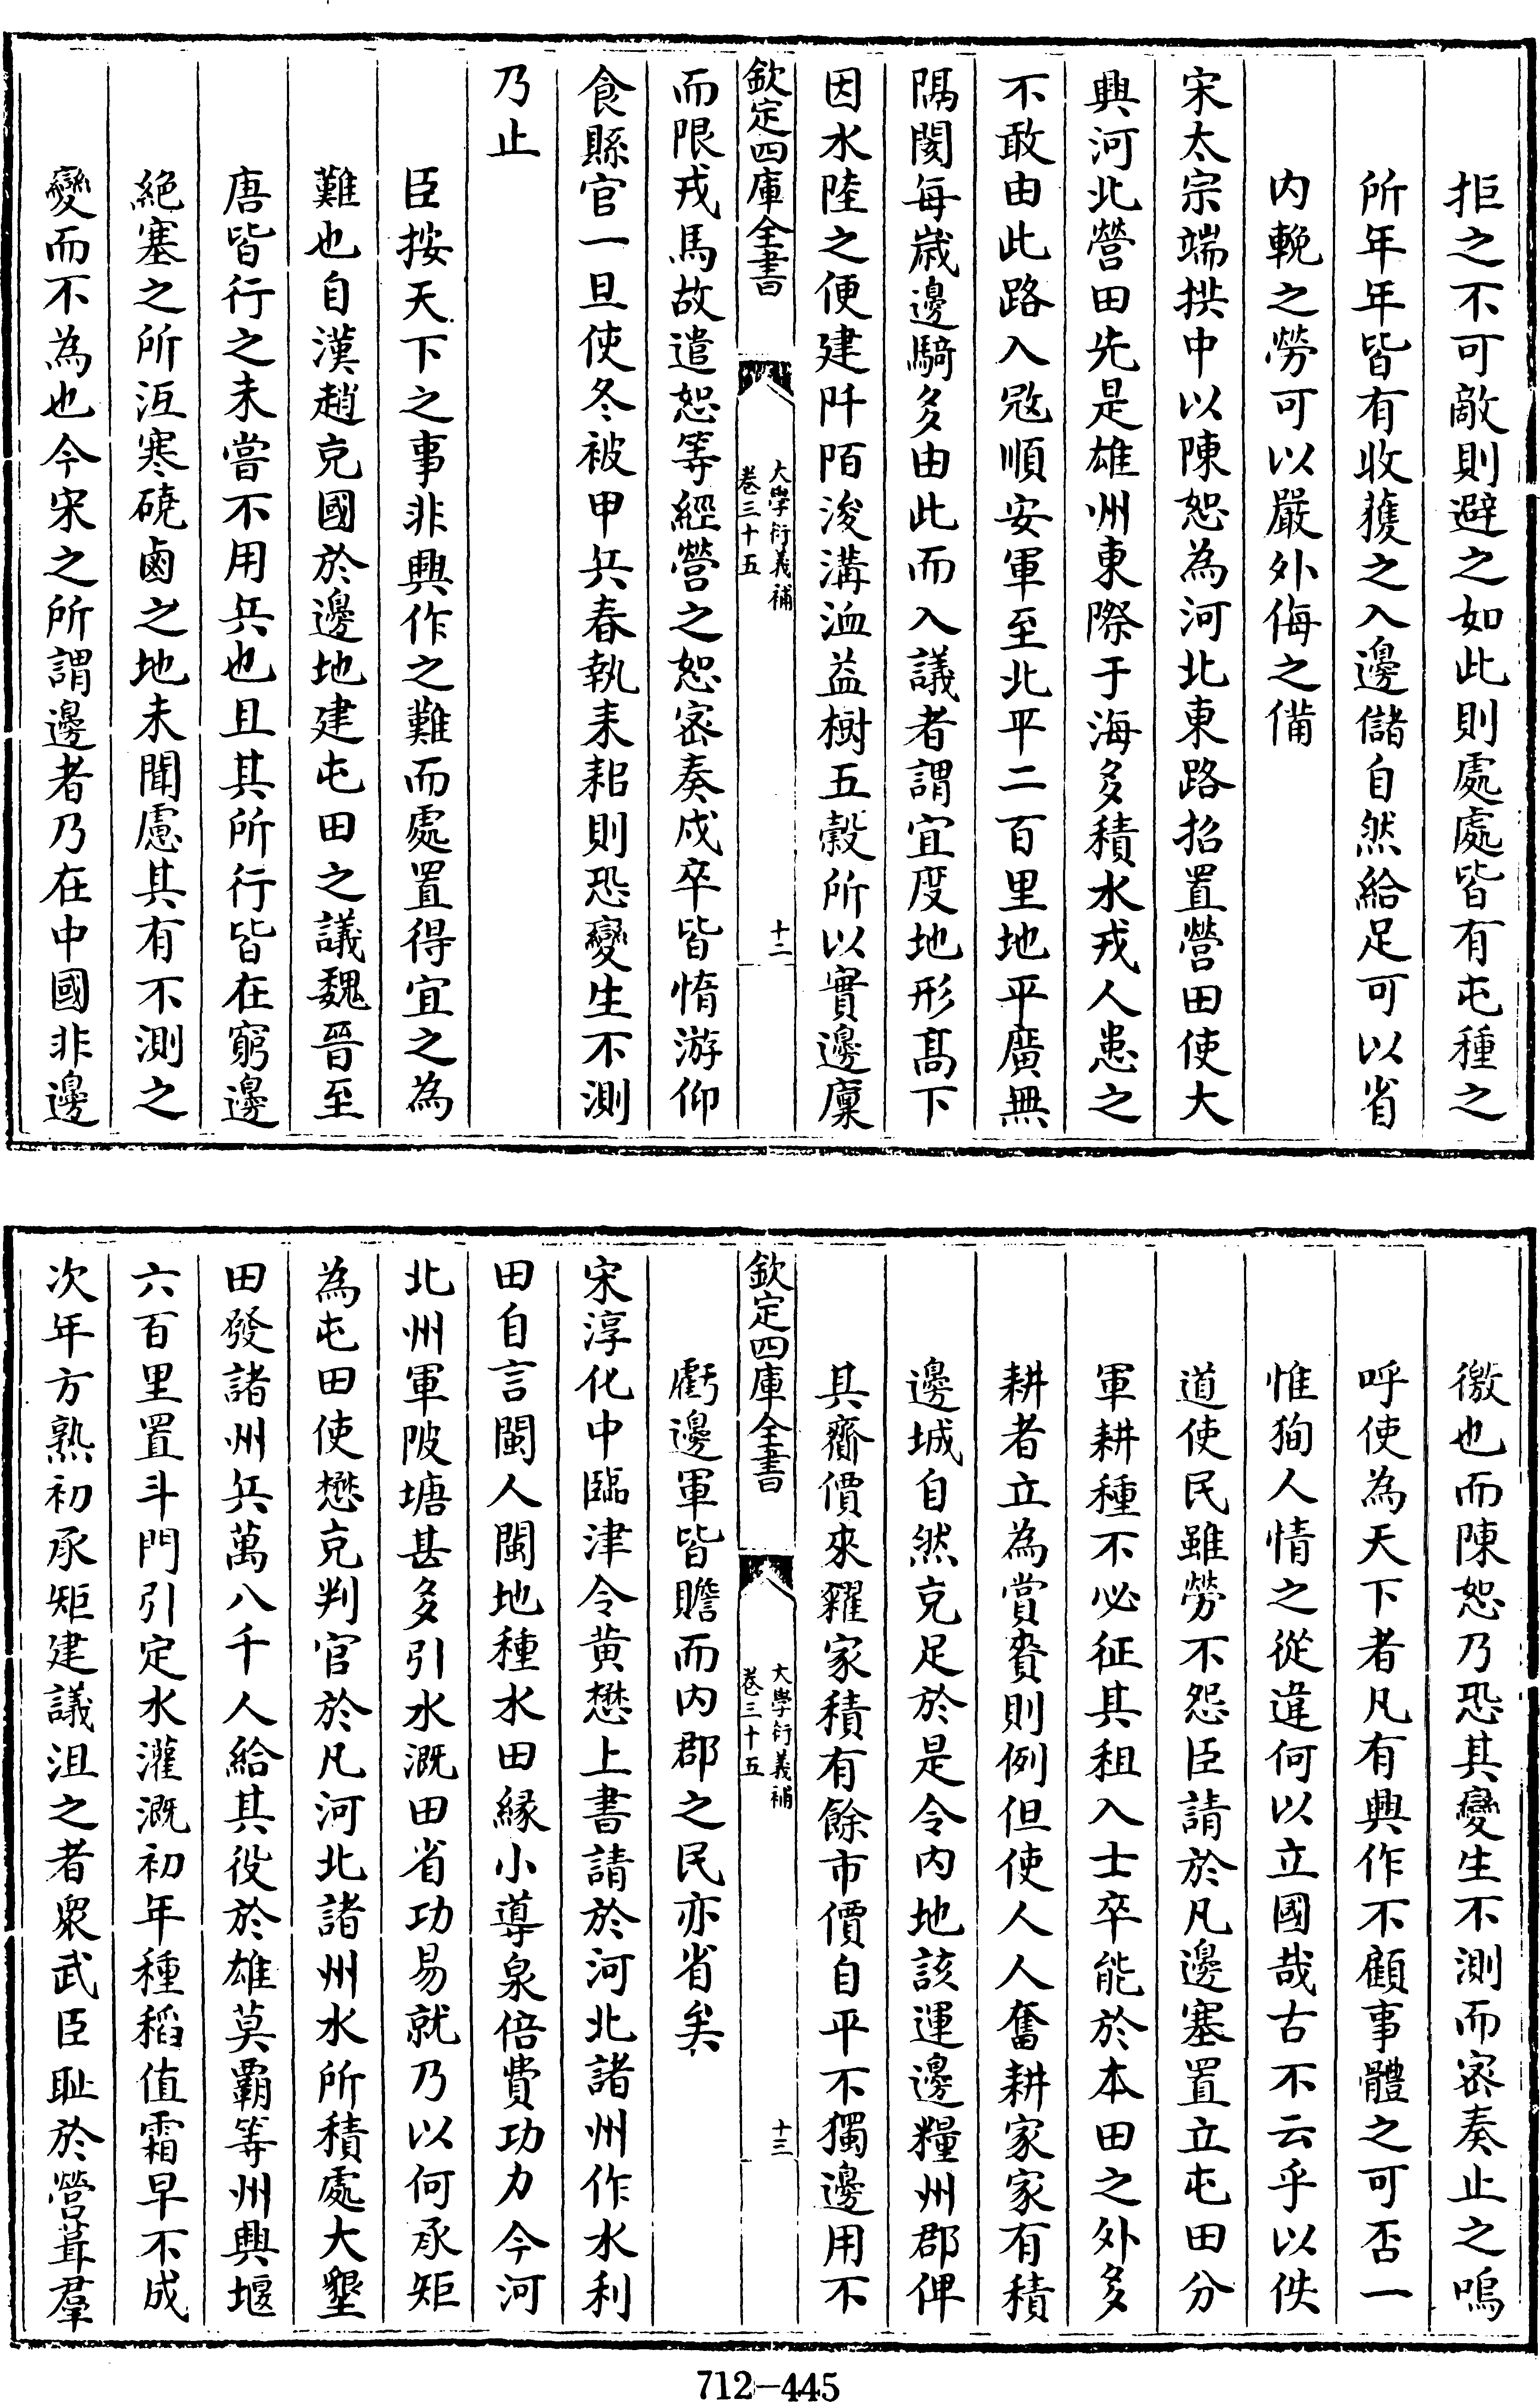 拒之不可敵則避之如此則處處皆有屯種之
所年年皆有收獲之入邊儲自然給足可以省
内輓之勞可以嚴外侮之備
宋太宗端拱中以陳恕為河北東路招置營田使大
興河北營田先是雄州東際于海多積水戎人患之
不敢由此路入𡨥順安軍至北平二百里地平廣無
隔閡每嵗邊騎多由此而入議者謂宜度地形髙下
因水陸之便建阡陌浚溝洫益樹五穀所以實邊廩
欽定四庫全書
大學衍義補
卷三十五
十二
而限戎馬故遣恕等經營之恕密奏戍卒皆惰游仰
食縣官一旦使冬被甲兵春執耒耜則恐變生不測
乃止
臣按天下之事非興作之難而處置得宜之為
難也自漢趙充國於邊地建屯田之議魏晉至
唐皆行之未嘗不用兵也且其所行皆在窮邊
絶塞之所沍寒磽鹵之地未聞慮其有不測之
變而不為也今宋之所謂邊者乃在中國非邊
徼也而陳恕乃恐其變生不測而密奏止之嗚
呼使為天下者凡有興作不顧事體之可否一
惟狥人情之從違何以立國哉古不云乎以佚
道使民雖勞不怨臣請於凡邊塞置立屯田分
軍耕種不必征其租入士卒能於本田之外多
耕者立為賞賚則例但使人人奮耕家家有積
邊城自然充足於是令内地該運邊糧州郡俾
其齎價來糴家積有餘市價自平不獨邊用不
欽定四庫全書
大學衍義補
卷三十五
十三
虧邊軍皆贍而内郡之民亦省矣
宋淳化中臨津令黄懋上書請於河北諸州作水利
田自言閩人閩地種水田縁小導泉倍費功力今河
北州軍陂塘甚多引水溉田省功易就乃以何承矩
為屯田使懋充判官於凡河北諸州水所積處大墾
田發諸州兵萬八千人給其役於雄莫霸等州興堰
六百里置斗門引定水灌溉初年種稻值霜早不成
次年方熟初承矩建議沮之者衆武臣耻於營葺羣
712-445